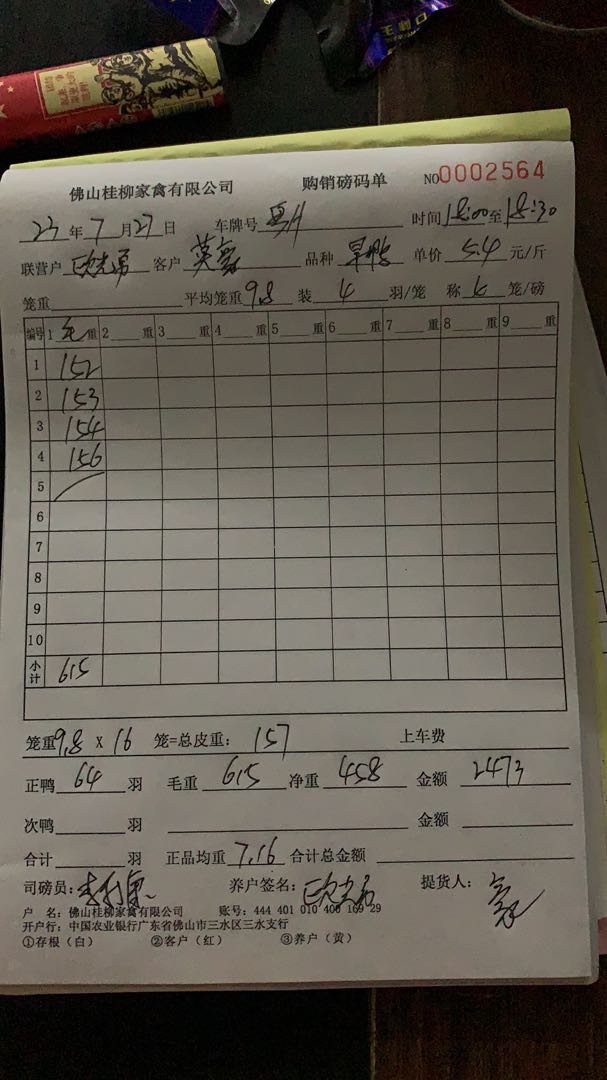 佛山桂柳家禽有限公司 购销磅码单 NO 0002564
23年7月27日 车牌号 粤A 时间18:00至18:30
联营户 客户 英 品种 单价 5.4 元/斤
笼重 平均笼重9.8 装 4 羽/笼 称 笼/磅
编号 1 毛 重 2 重 3 重 4 重 5 重 6 重 7 重 8 重 9 重
1 152
2 153
3 154
4 156
5
6
7
8
9
10
小计 615
笼重9.8 X 16 笼=总皮重: 157 上车费
正鸭 64 羽 毛重 615 净重 458 金额 2473
次鸭 羽 金额
合计 羽 正品均重 7.16 合计总金额
司磅员: 养户签名: 提货人:
户 名: 佛山桂柳家禽有限公司 账号: 444 401 010 400 169 29
开户行: 中国农业银行广东省佛山市三水区三水支行
①存根(白) ②客户(红) ③养户(黄)